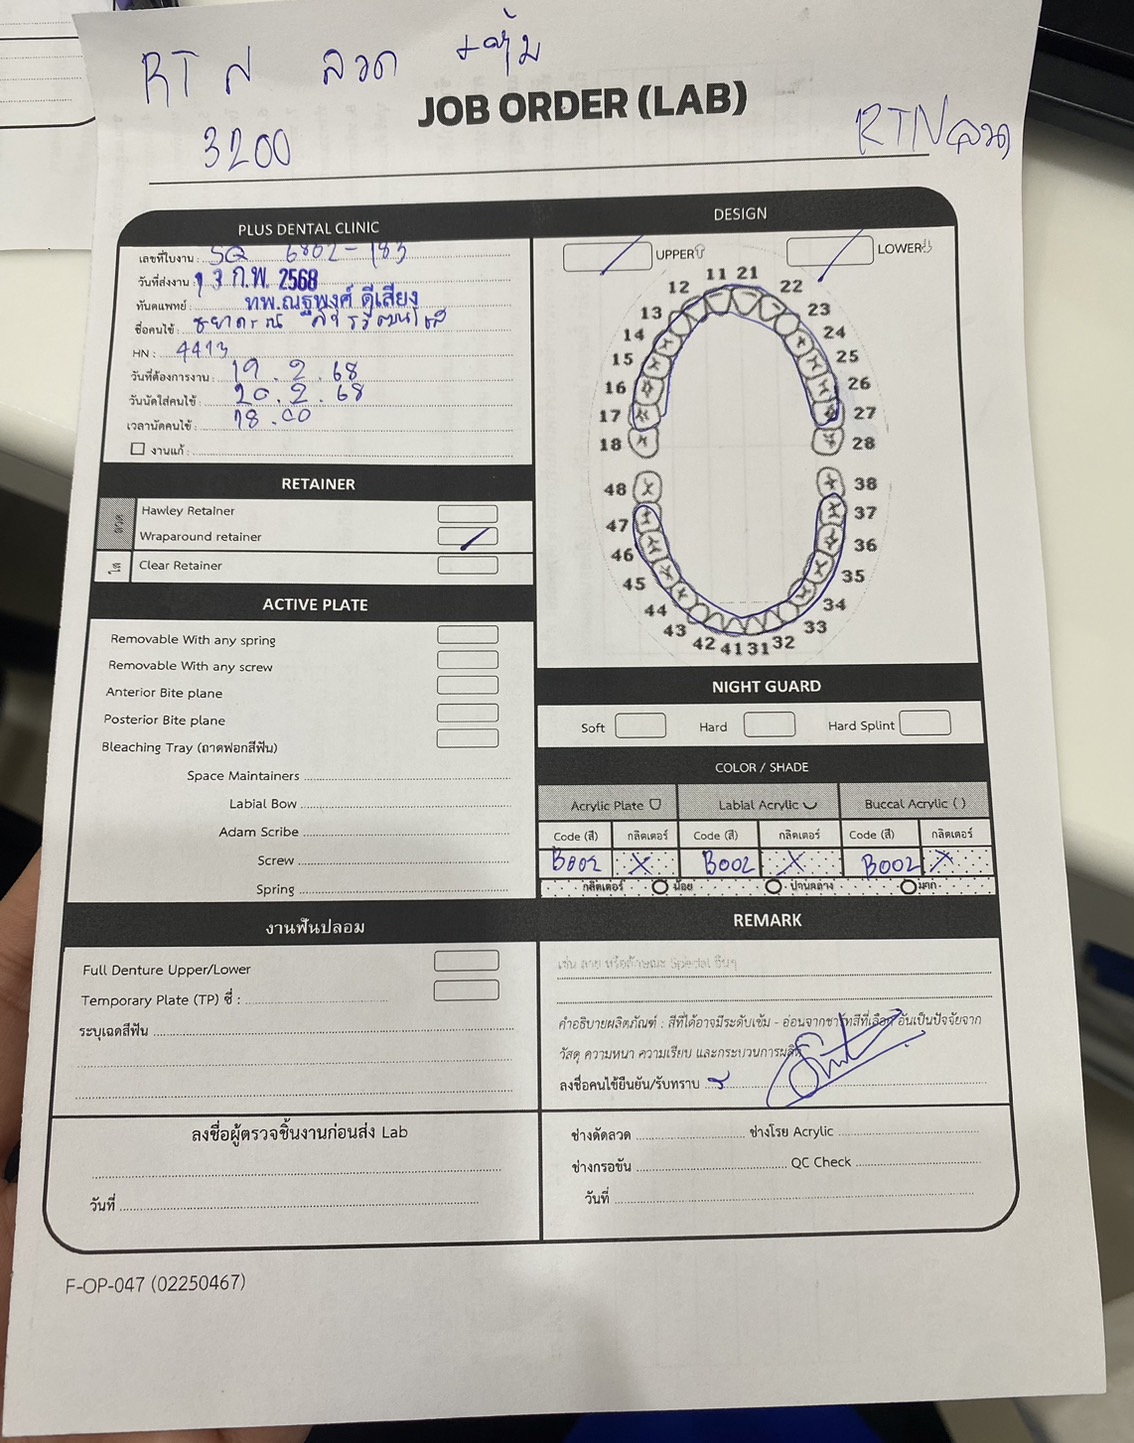 RTN ลวด +หุ้ม
JOB ORDER (LAB)
3200
RTN ลวด
PLUS DENTAL CLINIC
เลขที่ใบงาน : SQ 6802-183
วันที่ส่งงาน : 13 ก.พ. 2568
ทันตแพทย์ ทพ.ณฐพงศ์ ดีเสียง
ชื่อคนไข้ :
HN : 4413
วันที่ต้องการงาน : 19.2.68
วันนัดใส่คนไข้ : 20.2.68
เวลานัดคนไข้ : 18.00
งานแก้ :
RETAINER
ลวด
Hawley Retainer
Wraparound retainer
ใส
Clear Retainer
ACTIVE PLATE
Removable With any spring
Removable With any screw
Anterior Bite plane
Posterior Bite plane
Bleaching Tray (ถาดฟอกสีฟัน)
Space Maintainers
Labial Bow
Adam Scribe
Screw
Spring
งานฟันปลอม
Full Denture Upper/Lower
Temporary Plate (TP) ซี่ :
ระบุเฉดสีฟัน
ลงชื่อผู้ตรวจชิ้นงานก่อนส่ง Lab
วันที่
DESIGN
UPPER LOWER
11 21
12 22
13 23
14 24
15 25
16 26
17 27
18 28
48 38
47 37
46 36
45 35
44 34
43 33
42 41 31 32
NIGHT GUARD
Soft Hard Hard Splint
COLOR / SHADE
Acrylic Plate Labial Acrylic Buccal Acrylic ( )
Code (สี) กลิตเตอร์ Code (สี) กลิตเตอร์ Code (สี) กลิตเตอร์
B002 X B002 X B002 X
กลิตเตอร์ น้อย ปานกลาง มาก
REMARK
เช่น ลาย หรือลักษณะ Special อื่นๆ
คำอธิบายผลิตภัณฑ์ : สีที่ได้อาจมีระดับเข้ม - อ่อนจากชาร์ทสีที่เลือก อันเป็นปัจจัยจาก
วัสดุ ความหนา ความเรียบ และกระบวนการผลิต
ลงชื่อคนไข้ยืนยัน/รับทราบ
ช่างดัดลวด ช่างโรย Acrylic
ช่างกรอขัน QC Check
วันที่
F-OP-047 (02250467)